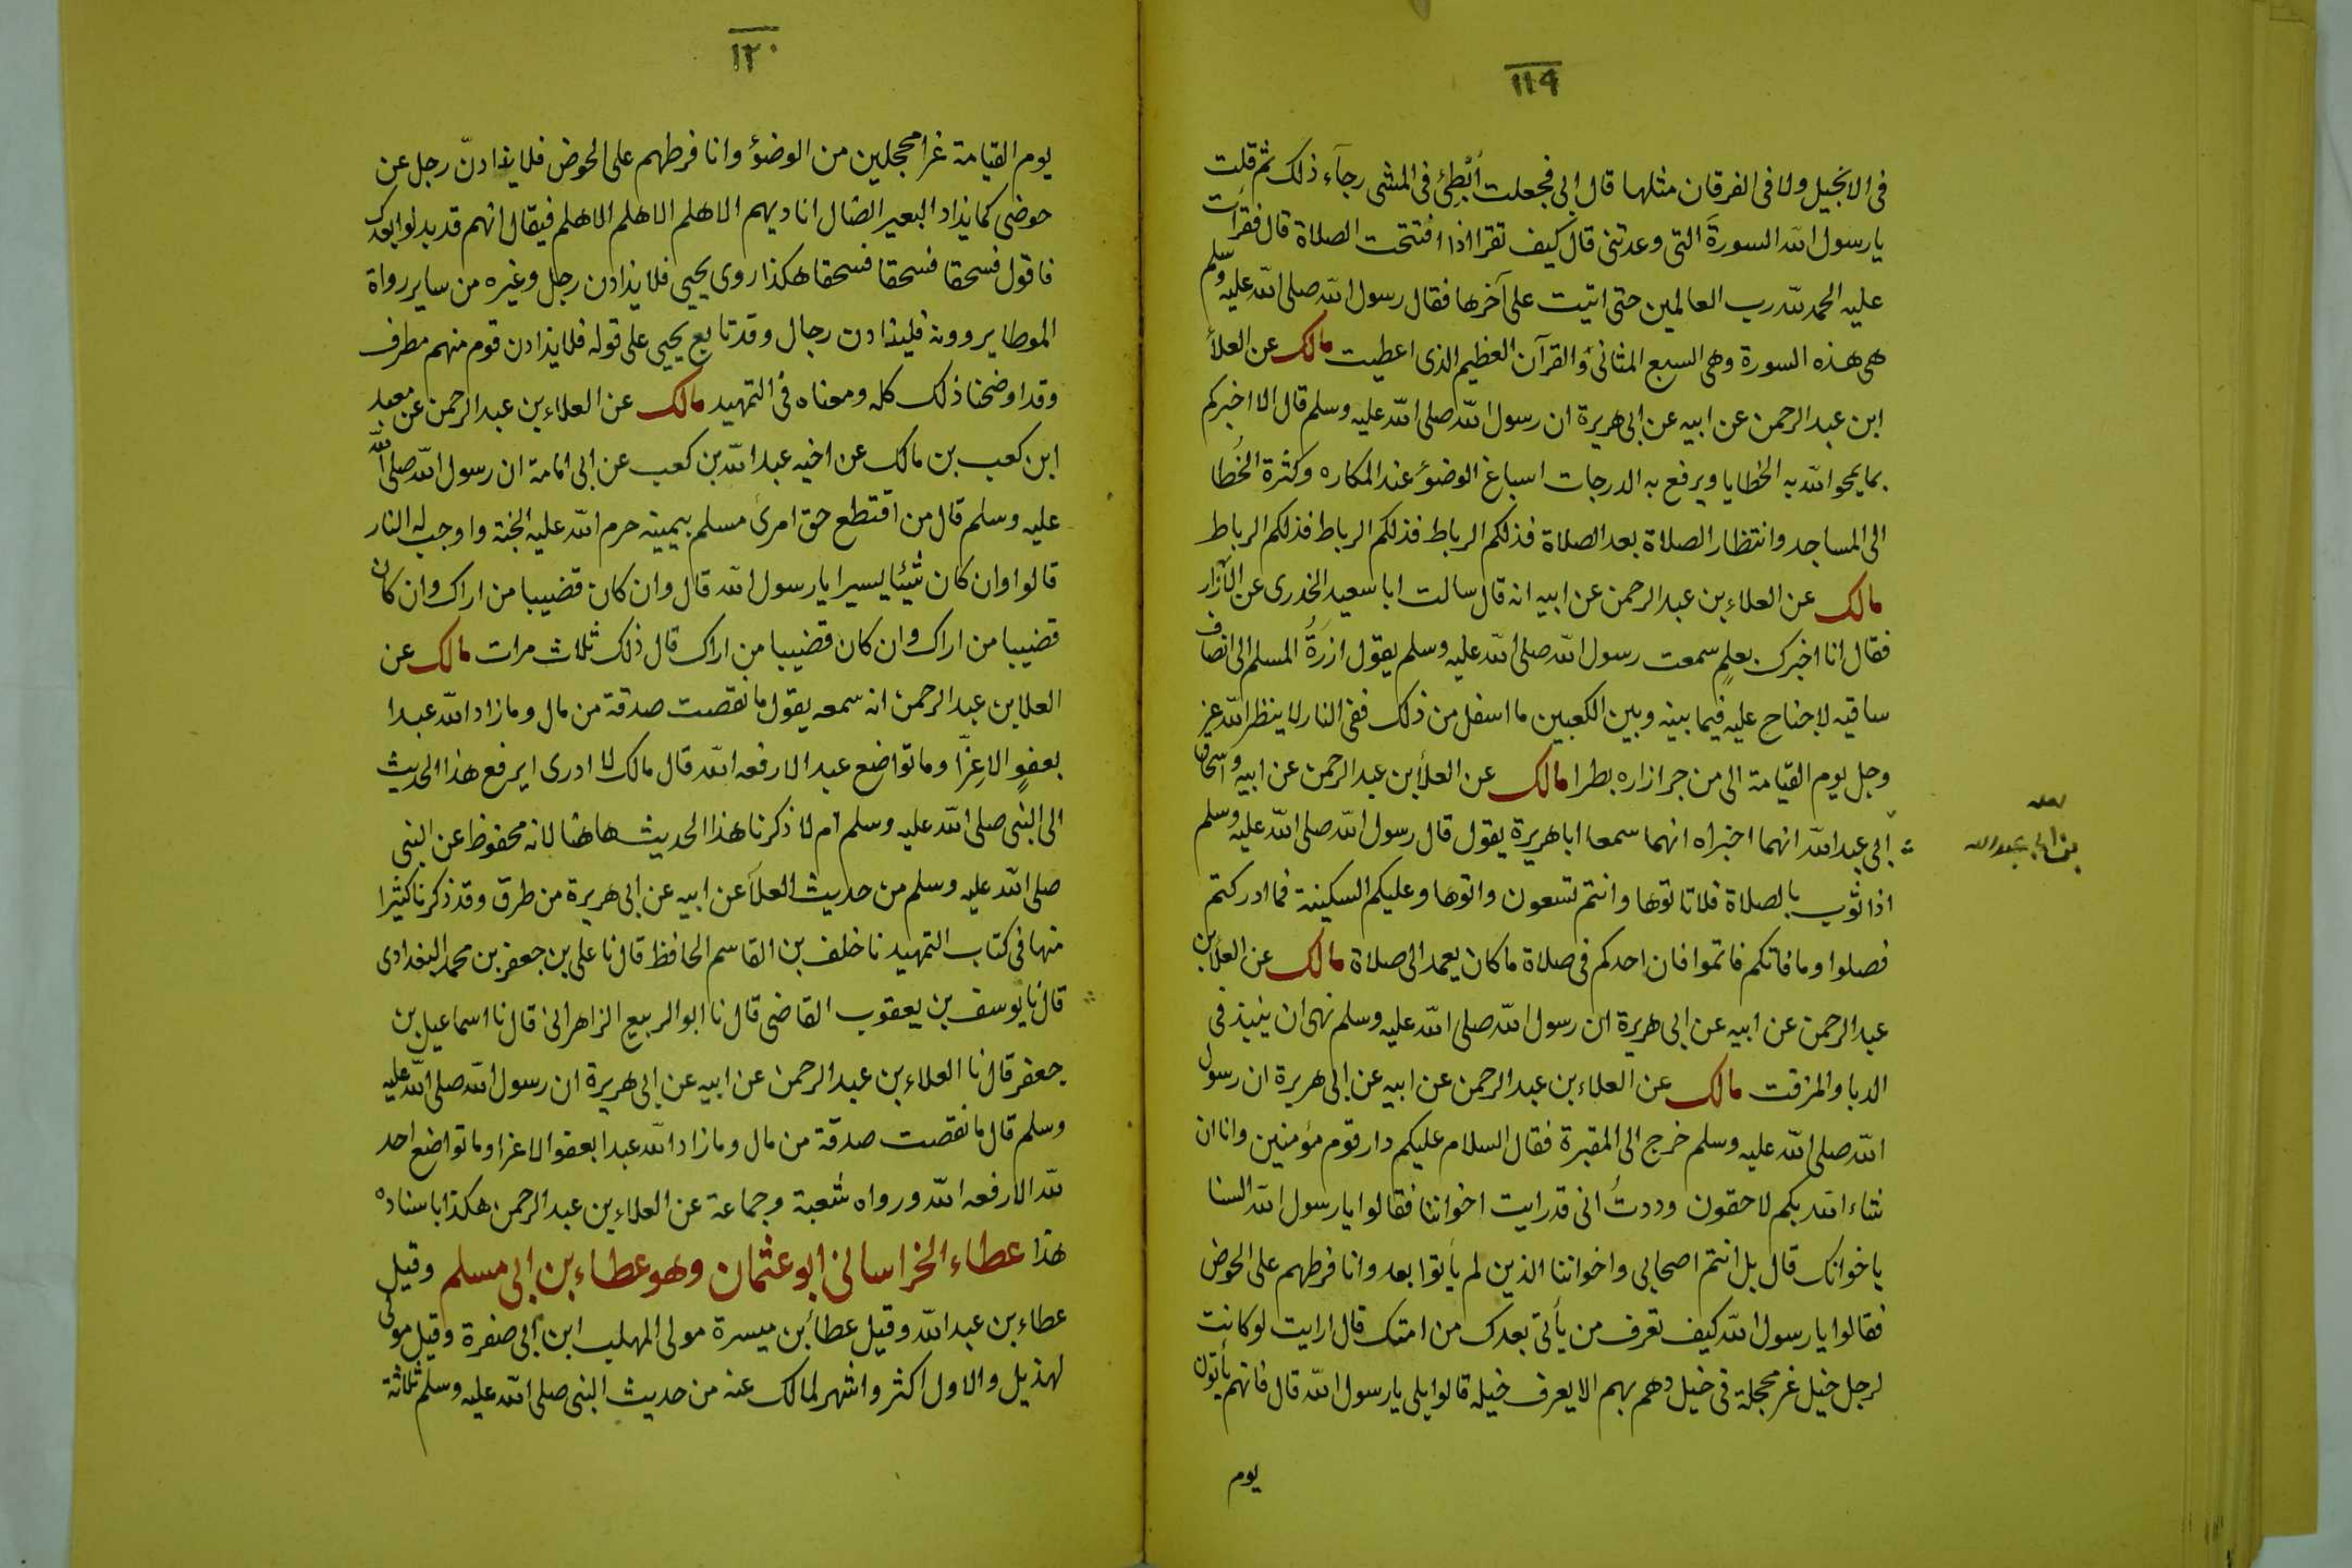 ١١٩
في الانجيل ولا في الفرقان مثلها قال ابي فجعلت أبْطِئ في المشي رجآء ذلك ثم قلت
يا رسول الله السورةَ التي وعدتني قال كيف تقرا اذا افتتحت الصلاة قال فقرأت
عليه الحمد لله رب العالمين حتى اتيت على آخرها فقال رسول الله صلى الله عليه وسلم
هي هذه السورة وهي السبع المثاني والقرآن العظيم الذي اعطيت مالك عن العلأ
ابن عبد الرحمن عن ابيه عن ابي هريرة ان رسول الله صلى الله عليه وسلم قال الا اخبركم
بما يمحو الله به الخطايا ويرفع به الدرجات اسباغ الوضؤ عند المكاره وكثرة الخُطا
الى المساجد وانتظار الصلاة بعد الصلاة فذلكم الرباط فذلكم الرباط فذلكم الرباط
مالك عن العلاء بن عبد الرحمن عن ابيه انه قال سالت ابا سعيد الخدري عن الازار
فقال انا اخبرك بعلمٍ سمعت رسول الله صلى الله عليه وسلم يقول ازرةُ المسلم الى انصاف
ساقيه لا جناح عليه فيما بينه وبين الكعبين ما اسفل من ذلك ففي النار لا ينظر الله عز
وجل يوم القيامة الى من جر ازاره بطرا مالك عن العلأ بن عبد الرحمن عن ابيه واسحاق
ابي عبد الله انهما اخبراه انهما سمعا ابا هريرة يقول قال رسول الله صلى الله عليه وسلم
لعله
بن ابي عبد الله
اذا ثوب بالصلاة فلا تاتوها وانتم تسعون واتوها وعليكم السكينة فما ادركتم
فصلوا وما فاتكم فاتموا فان احدكم في صلاة ما كان يعمد الى صلاة مالك عن العلأ بن
عبد الرحمن عن ابيه عن ابي هريرة ان رسول الله صلى الله عليه وسلم نهى ان ينبذ في
الدبا والمزفت مالك عن العلاء بن عبد الرحمن عن ابيه عن ابي هريرة ان رسول
الله صلى الله عليه وسلم خرج الى المقبرة فقال السلام عليكم دار قوم مؤمنين وانا ان
شاء الله بكم لاحقون وددتُ اني قد رايت اخواننا فقالوا يا رسول الله السنا
باخوانك قال بل انتم اصحابي واخواننا الذين لم يأتوا بعد وانا فرطهم على الحوض
فقالوا يا رسول الله كيف تعرف من يأتي بعدك من امتك قال ارايت لو كانت
لرجل خيل غر محجلة في خيل دهم بهم الا يعرف خيله قالوا بلى يا رسول الله قال فانهم يأتون
يوم
١٢٠
يوم القيامة غرا محجلين من الوضؤ وانا فرطهم على الحوض فلا يذادنّ رجل عن
حوضي كما يذاد البعير الضال اناديهم الا هلم الا هلم الا هلم فيقال انهم قد بدلوا بعدك
فاقول فسحقا فسحقا فسحقا هكذا روى يحيى فلا يذادن رجل وغيره من ساير رواة
الموطا يروونه فليذادن رجال وقد تابع يحيى على قوله فلا يذادن قوم منهم مطرف
وقد اوضحنا ذلك كله ومعناه في التمهيد مالك عن العلاء بن عبد الرحمن عن معبد
ابن كعب بن مالك عن اخيه عبد الله بن كعب عن ابي امامة ان رسول الله صلى الله
عليه وسلم قال من اقتطع حق امرئ مسلم بيمينه حرم الله عليه الجنة واوجب له النار
قالوا وان كان شيئا يسيرا يا رسول الله قال وان كان قضيبا من اراك وان كان
قضيبا من اراك وان كان قضيبا من اراك قال ذلك ثلاث مرات مالك عن
العلا بن عبد الرحمن انه سمعه يقول ما نقصت صدقة من مال وما زاد الله عبدا
بعفوٍ الا عِزّا وما تواضع عبد الا رفعه الله قال مالك لا ادري ايرفع هذا الحديث
الى النبي صلى الله عليه وسلم ام لا ذكرنا هذا الحديث هاهنا لانه محفوظ عن النبي
صلى الله عليه وسلم من حديث العلآ عن ابيه عن ابي هريرة من طرق وقد ذكرنا كثيرا
منها في كتاب التمهيد نا خلف بن القاسم الحافظ قال نا علي بن جعفر بن محمد البغدادي
قال نا يوسف بن يعقوب القاضي قال نا ابو الربيع الزاهراني قال نا اسماعيل بن
جعفر قال نا العلاء بن عبد الرحمن عن ابيه عن ابي هريرة ان رسول الله صلى الله عليه
وسلم قال ما نقصت صدقة من مال وما زاد الله عبدا بعفو الا عزا وما تواضع احد
لله الا رفعه الله ورواه شعبة وجماعة عن العلاء بن عبد الرحمن هكذا باسناده
هذا عطاء الخراساني ابو عثمان وهو عطاء بن ابي مسلم وقيل
عطاء بن عبد الله وقيل عطأ بن ميسرة مولى المهلب ابن ابي صفرة وقيل مولى
لهذيل والاول اكثر واشهر لمالك عنه من حديث النبي صلى الله عليه وسلم ثلاثة